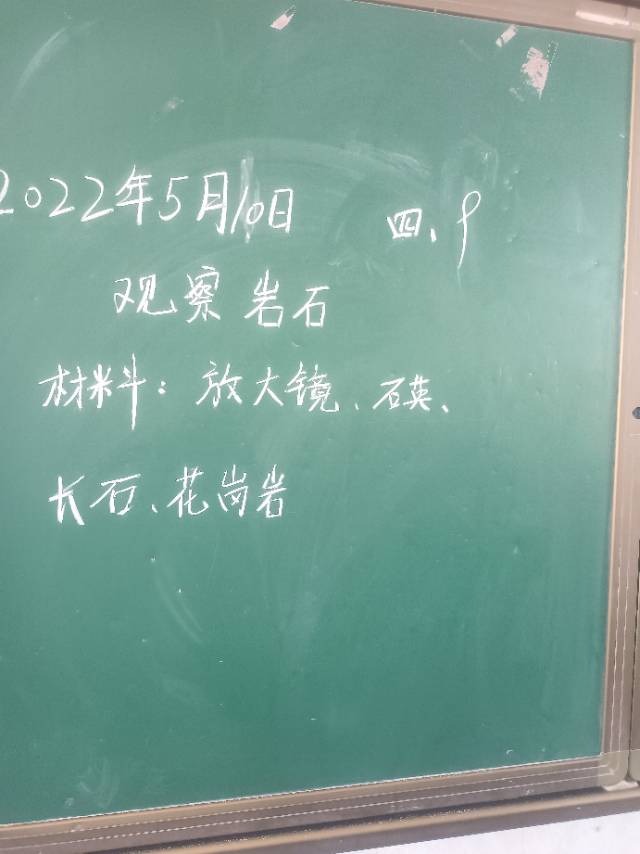 2022年5月10日 四、9
观察岩石
材料：放大镜、石英、
长石、花岗岩